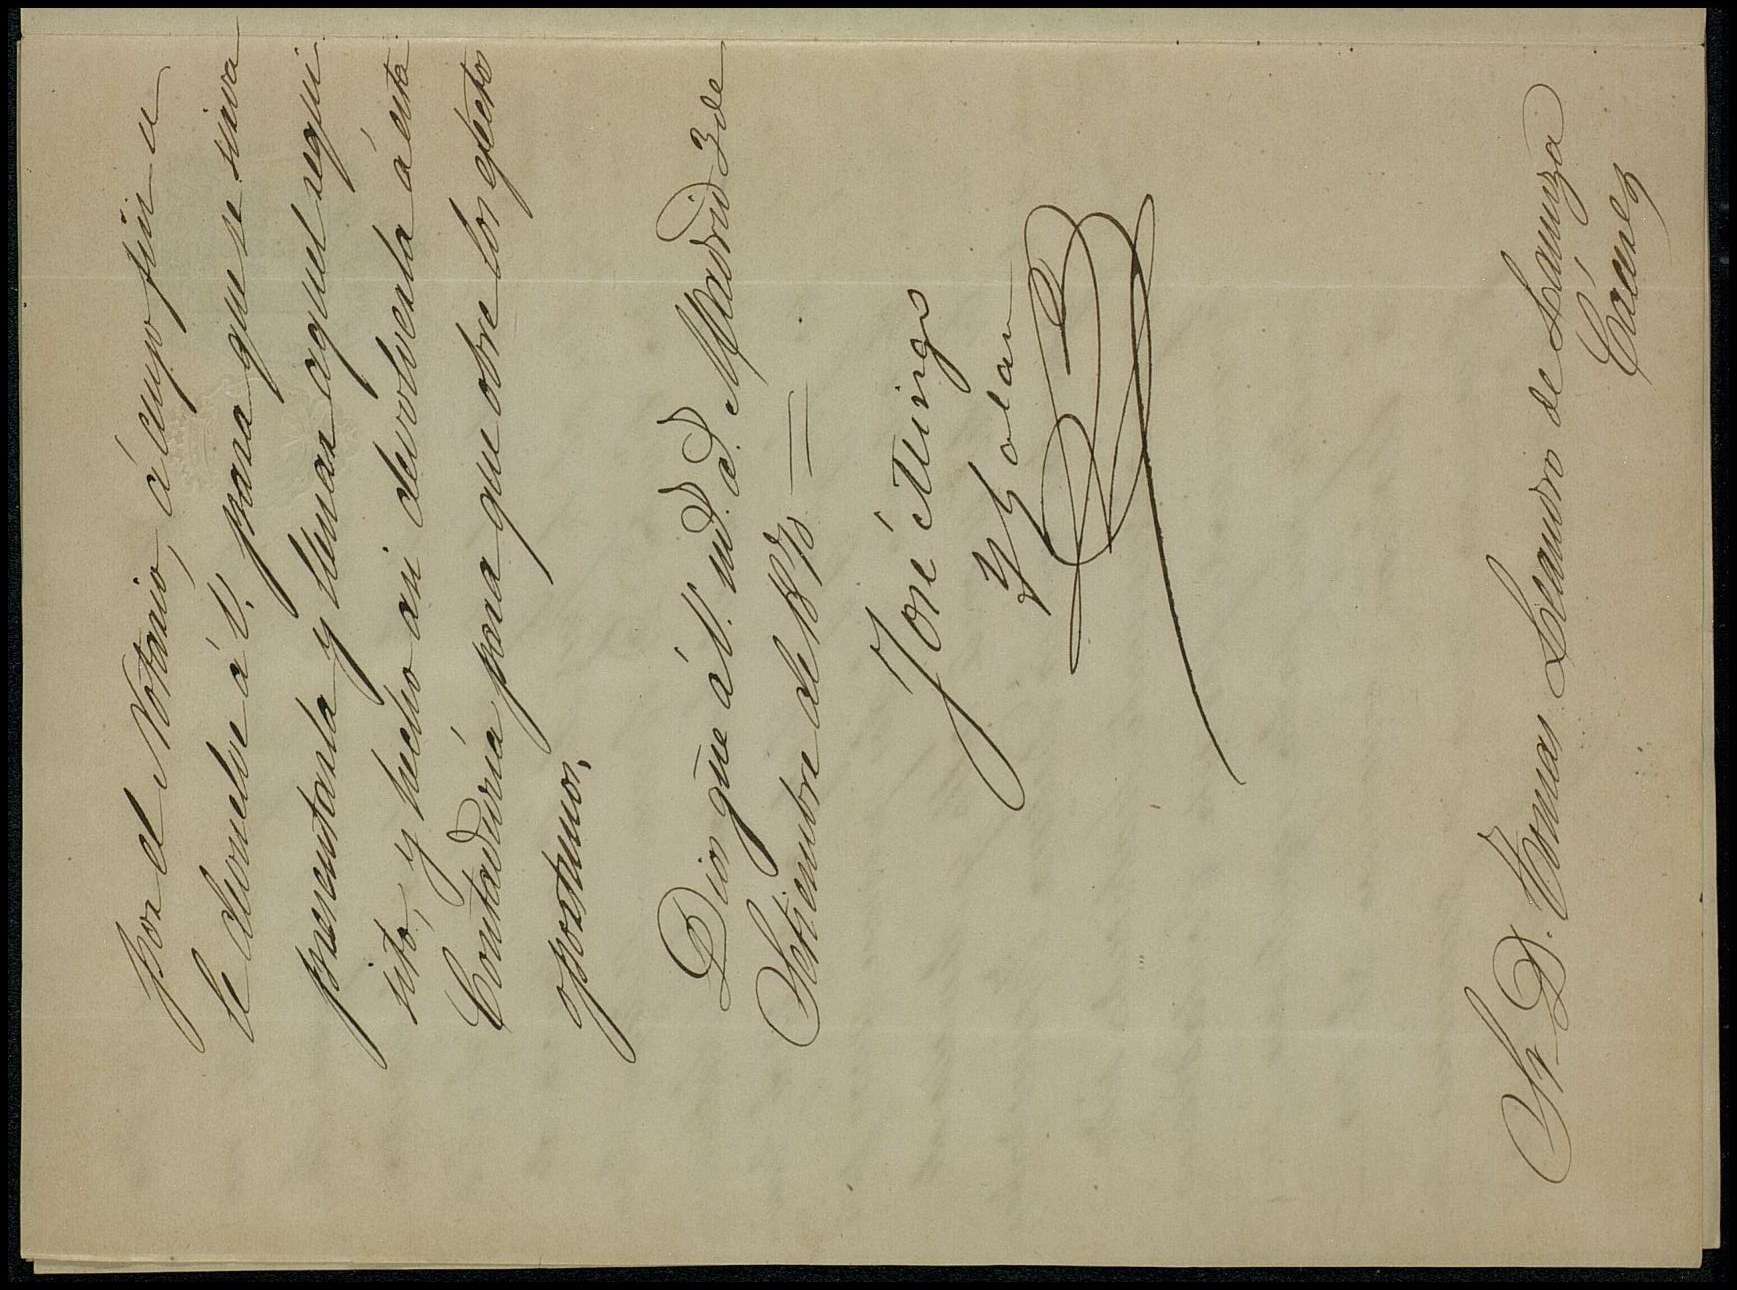 por el Notario, á cuyo fin se
le devuelve á V. para que se sirva
presentarla y llenar aquel requi
sito, y hecho asi devolverla á esta
Contaduría para que obre los efectos
oportunos.
Dios gue á V. m.s a.s Madrid 3 de
Setiembre de 1870
José Mingo
y Solar
Sr D. Tomas Leandro de Lanuza
Cáceres